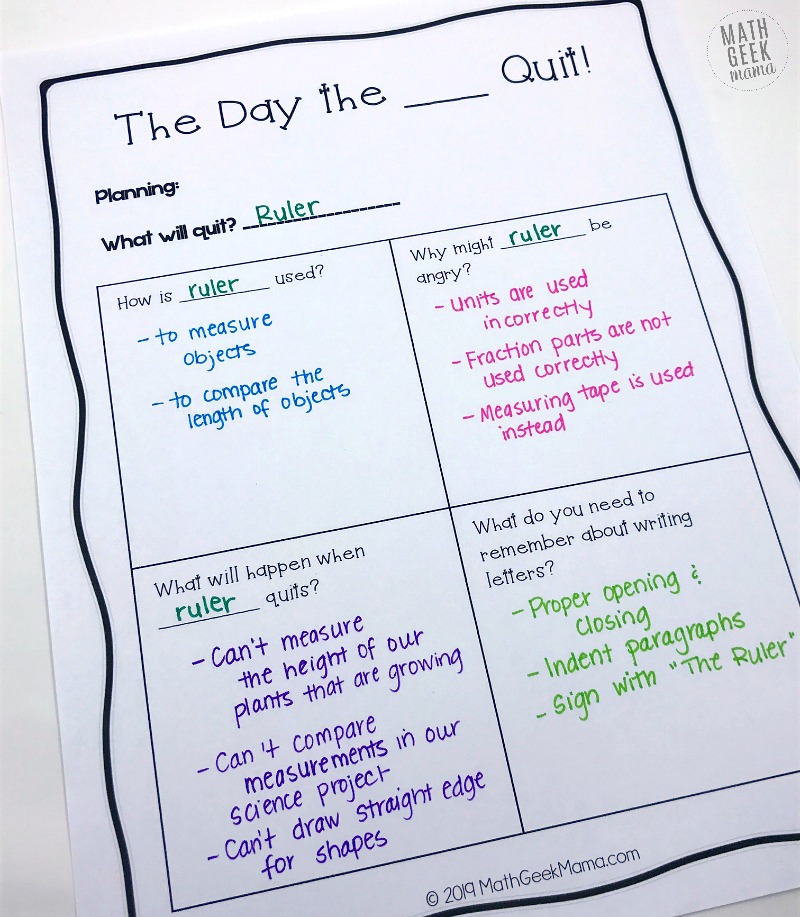 MATH
GEEK
mama
The Day the ____ Quit!
Planning:
What will quit? Ruler
How is ruler used?
- to measure
objects
- to compare the
length of objects
Why might ruler be
angry?
- Units are used
incorrectly
- Fraction parts are not
used correctly
- Measuring tape is used
instead
What will happen when
ruler quits?
- Can't measure
the height of our
plants that are growing
- Can't compare
measurements in our
science project
- Can't draw straight edge
for shapes
What do you need to
remember about writing
letters?
- Proper opening &
closing
- Indent paragraphs
- Sign with "The Ruler"
© 2019 MathGeekMama.com